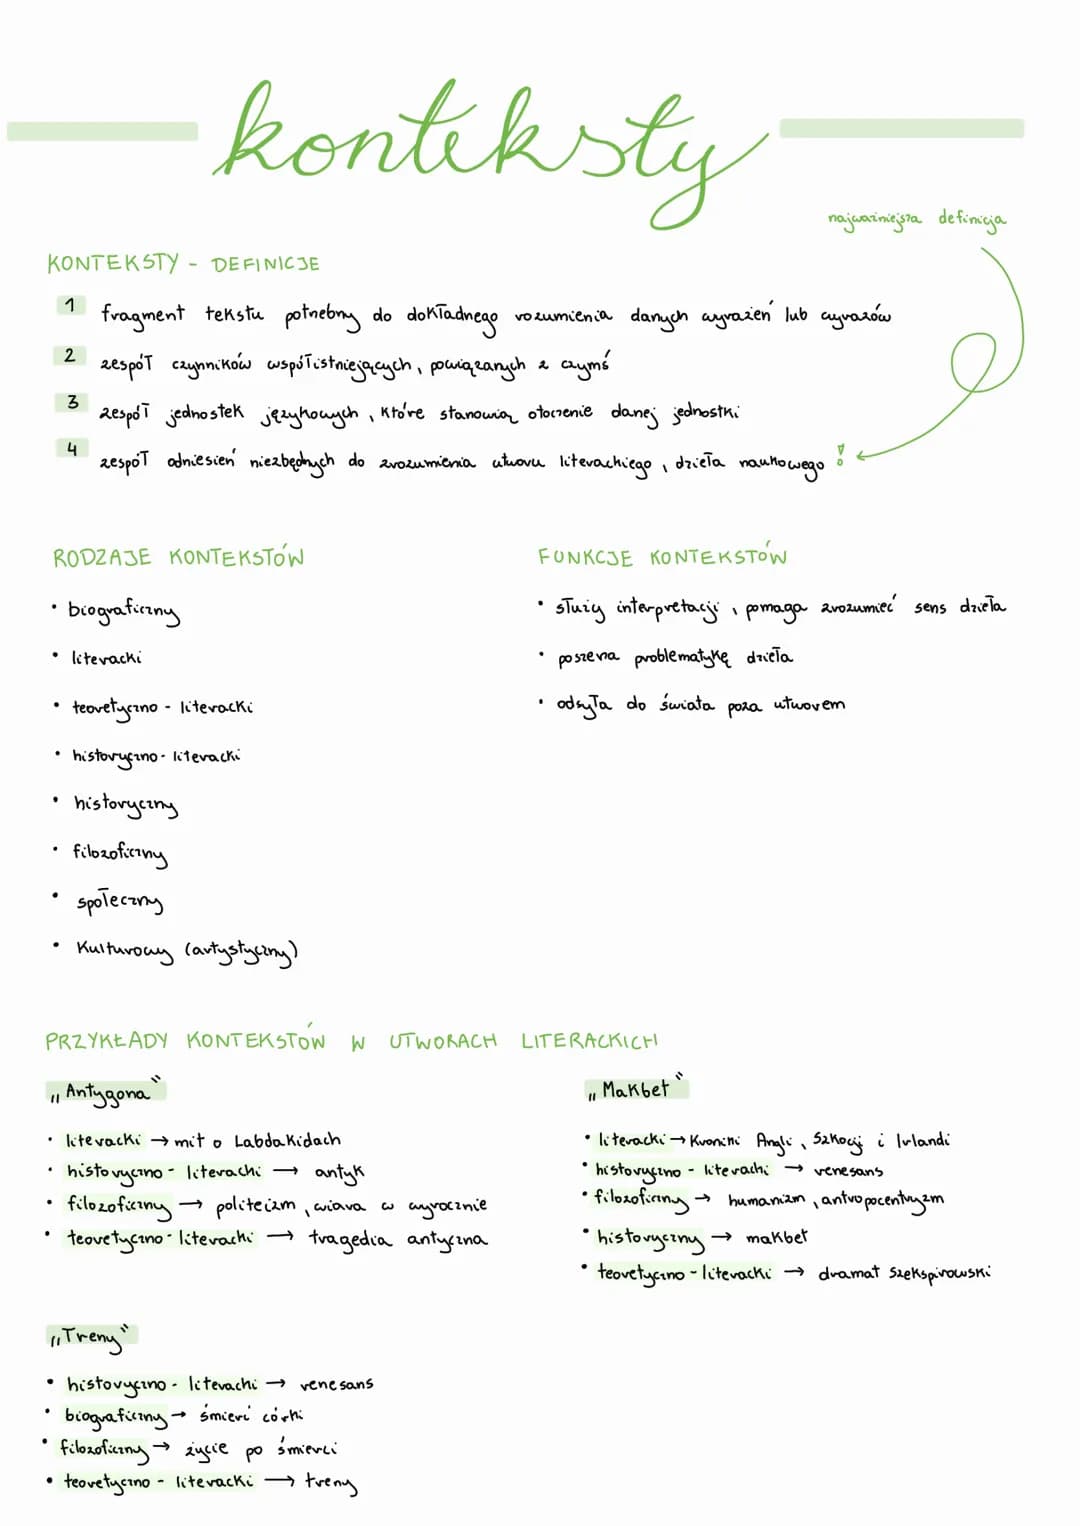 konteksty
najważniejsza definicja
KONTEKSTY - DEFINICJE
1 fragment tekstu potrzebny do dokładnego rozumienia danych wyrażeń lub wyrazów
2 zespół czynników współistniejących, powiązanych z czymś
3 zespół jednostek językowych, które stanowią otoczenie danej jednostki
4 zespół odniesień niezbędnych do zrozumienia utworu literackiego, dzieła naukowego !
RODZAJE KONTEKSTÓW
• biograficzny
• literacki
• teoretyczno - literacki
• historyczno - literacki
• historyczny
• filozoficzny
• społeczny
• kulturowy (artystyczny)
FUNKCJE KONTEKSTÓW
• służy interpretacji, pomaga zrozumieć sens dzieła
• poszerza problematykę dzieła
• odsyła do świata poza utworem
PRZYKŁADY KONTEKSTÓW W UTWORACH LITERACKICH
„Antygona”
• literacki → mit o Labdakidach
• historyczno - literacki → antyk
• filozoficzny → politeizm, wiara w wyrocznie
• teoretyczno - literacki → tragedia antyczna
„Makbet”
• literacki → Kroniki Angli, Szkocji i Irlandi
• historyczno - literacki → renesans
• filozoficzny → humanizm, antropocentryzm
• historyczny → makbet
• teoretyczno - literacki → dramat szekspirowski
„Treny”
• historyczno - literacki → renesans
• biograficzny → śmierć córki
• filozoficzny → życie po śmierci
• teoretyczno - literacki → treny